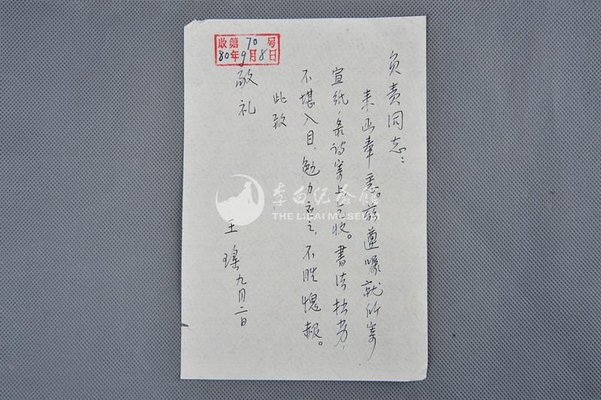 负责同志：
来函奉悉。兹遵嘱就所寄
宣纸，录诗寄上乞收。书法拙劣，
不堪入目，勉力应之，不胜愧赧。
此致
敬礼
王瑶 九月二日
收 70 号
80年9月8日
李白纪念馆
THE LIBAI MUSEUM